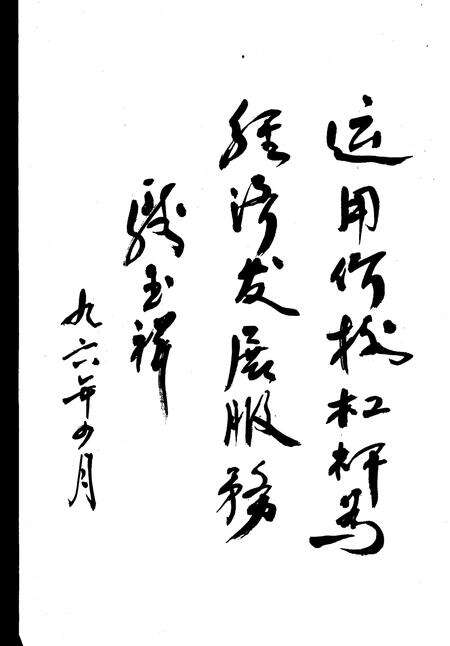 运用价格杠杆为
经济发展服務
玉祥
九六年月